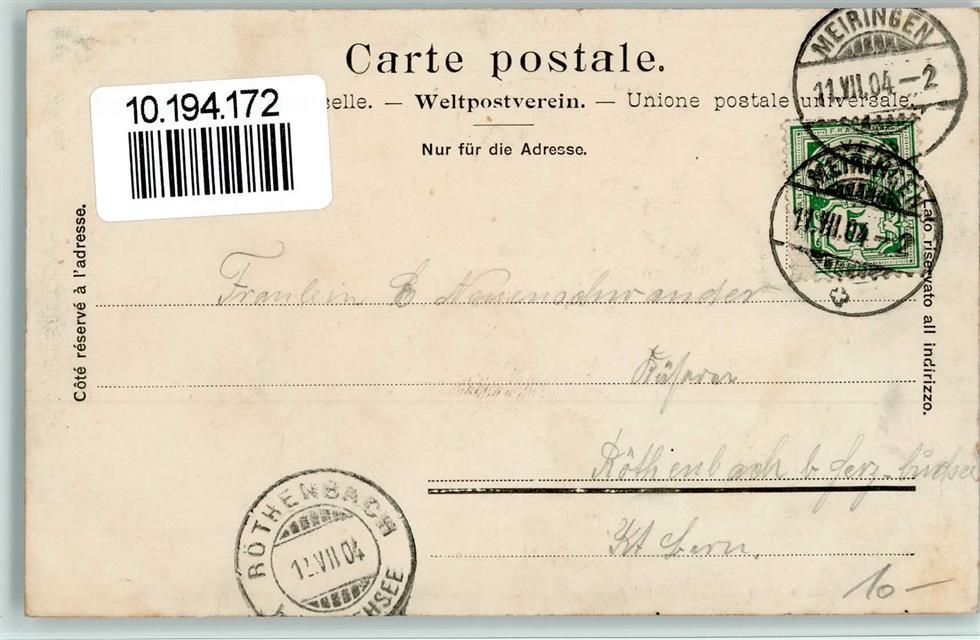 Carte postale.
10.194.172
selle. — Weltpostverein. — Unione postale universale.
Nur für die Adresse.
MEIRINGEN
11.VII.04.-2
MEIRINGEN
11.VII.04.-2
Côté réservé à l'adresse.
Lato riservato all indirizzo.
Fräulein E Neuenschwander
Röthenbach b Herz-buchsee
Kt Bern.
RÖTHENBACH
12.VII.04
HSEE
10-